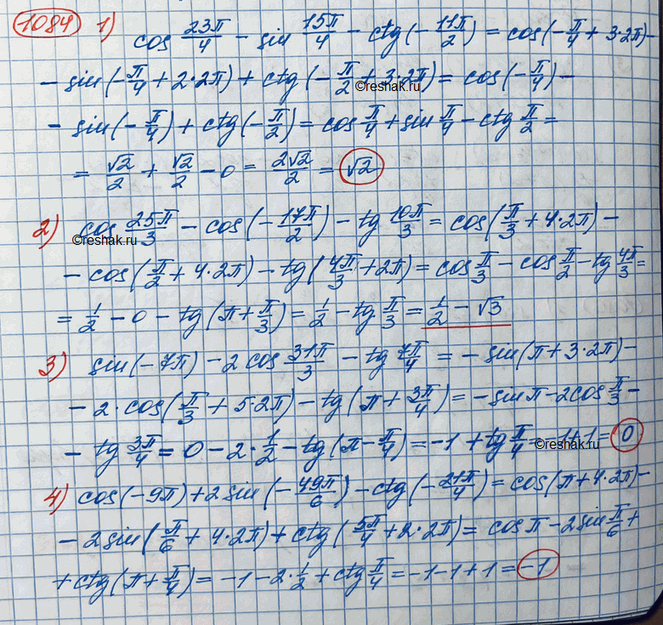 1084 1) cos 23π/4 - sin 15π/4 - ctg(-11π/2) = cos(-π/4 + 3·2π) -
- sin(-π/4 + 2·2π) + ctg(-π/2 + 3·2π) = cos(-π/4) -
©reshak.ru
- sin(-π/4) + ctg(-π/2) = cos π/4 + sin π/4 - ctg π/2 =
= √2/2 + √2/2 - 0 = 2√2/2 = √2
2) cos 25π/3 - cos(-17π/2) - tg 10π/3 = cos(π/3 + 4·2π) -
©reshak.ru
- cos(π/2 + 4·2π) - tg(4π/3 + 2π) = cos π/3 - cos π/2 - tg 4π/3 =
= 1/2 - 0 - tg(π + π/3) = 1/2 - tg π/3 = 1/2 - √3
3) sin(-7π) - 2 cos 31π/3 - tg 7π/4 = - sin(π + 3·2π) -
- 2·cos(π/3 + 5·2π) - tg(π + 3π/4) = - sin π - 2cos π/3 -
- tg 3π/4 = 0 - 2·1/2 - tg(π - π/4) = -1 + tg π/4 = -1+1 = 0
©reshak.ru
4) cos(-9π) + 2 sin(-49π/6) - ctg(-21π/4) = cos(π + 4·2π) -
- 2sin(π/6 + 4·2π) + ctg(5π/4 + 2·2π) = cos π - 2sin π/6 +
+ ctg(π + π/4) = -1 - 2·1/2 + ctg π/4 = -1 - 1 + 1 = -1